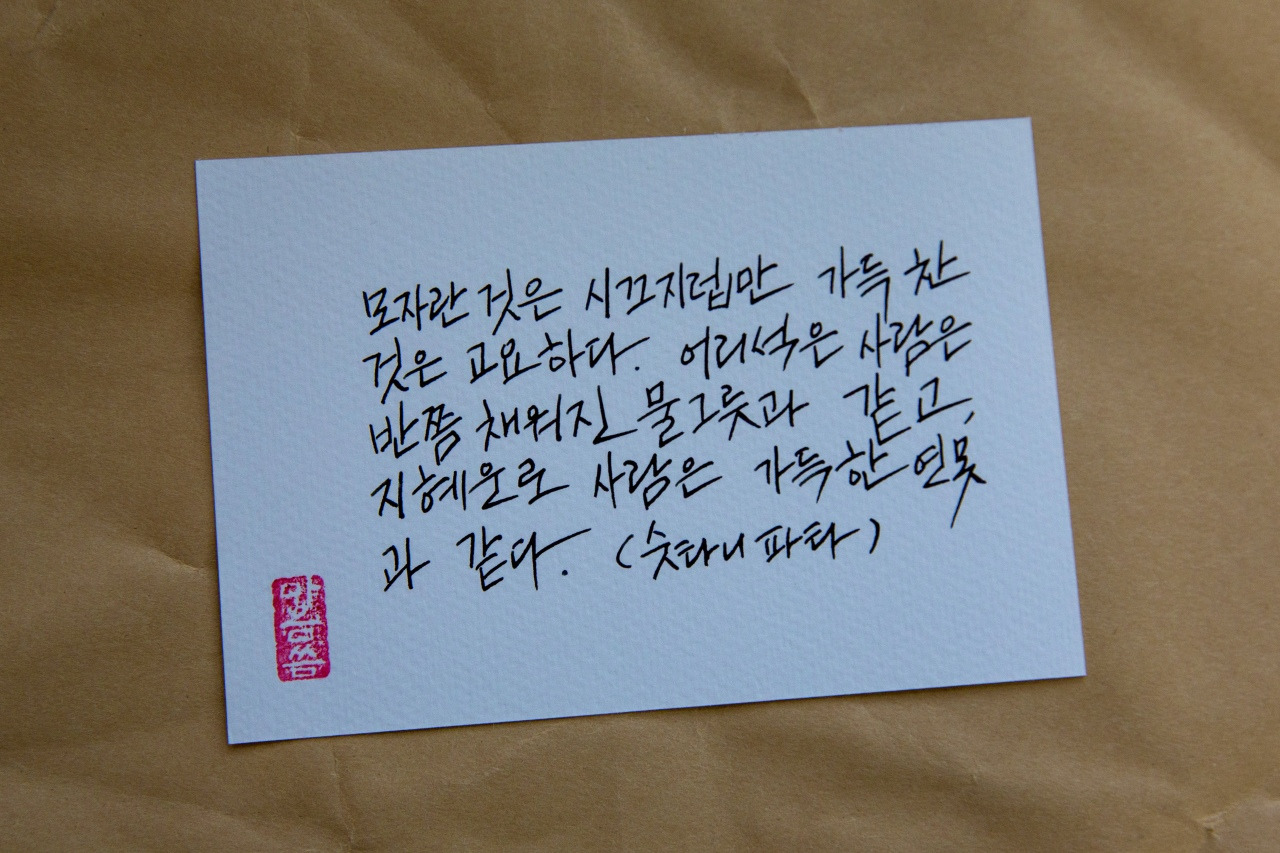 모자란 것은 시끄지럽만 가득 찬
것은 고요하다. 어리석은 사람은
반쯤 채워진 물그릇과 같고,
지혜운로 사람은 가득한 연못
과 같다. (숫타니파타)